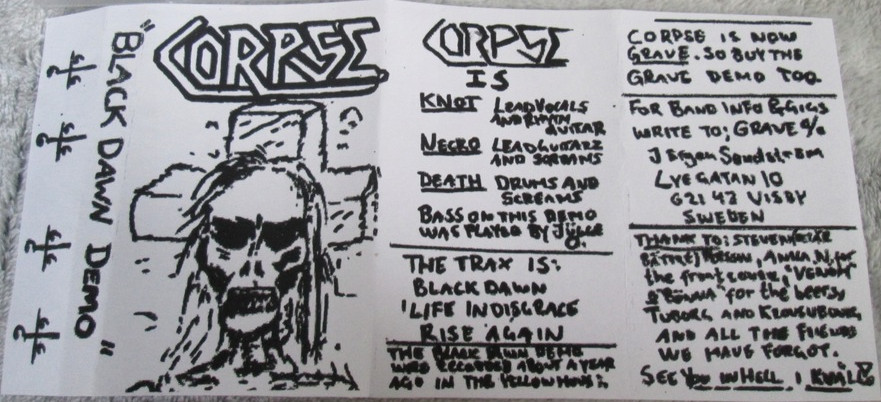 "BLACK DAWN DEMO"
CORPSE
CORPSE
IS
KNOT LEAD VOCALS
AND RHYTM
GUITAR
NECRO LEADGUITARZ
AND SCREAMS
DEATH DRUMS AND
SCREAMS
BASS ON THIS DEMO
WAS PLAYED BY
THE TRAX IS:
BLACK DAWN
LIFE IN DISGRACE
RISE AGAIN
THE BLACK DAWN DEMO
WAS RECORDED ABOUT A YEAR
AGO IN THE YELLOW HOUSE
CORPSE IS NOW
GRAVE. SO BUY THE
GRAVE DEMO TOO.
FOR BAND INFO & GIGS
WRITE TO: GRAVE c/o
Jörgen Sandström
LYEGATAN 10
621 47 VISBY
SWEDEN
THANX TO: STEVEN
ANNA.N. for
the front cover, "VERNON"
& "BÖNNA" for the beers,
TUBORG AND KRONENBOURG
AND ALL THE FIENDS
WE HAVE FORGOT.
SEE YOU IN HELL, I KVÄLL